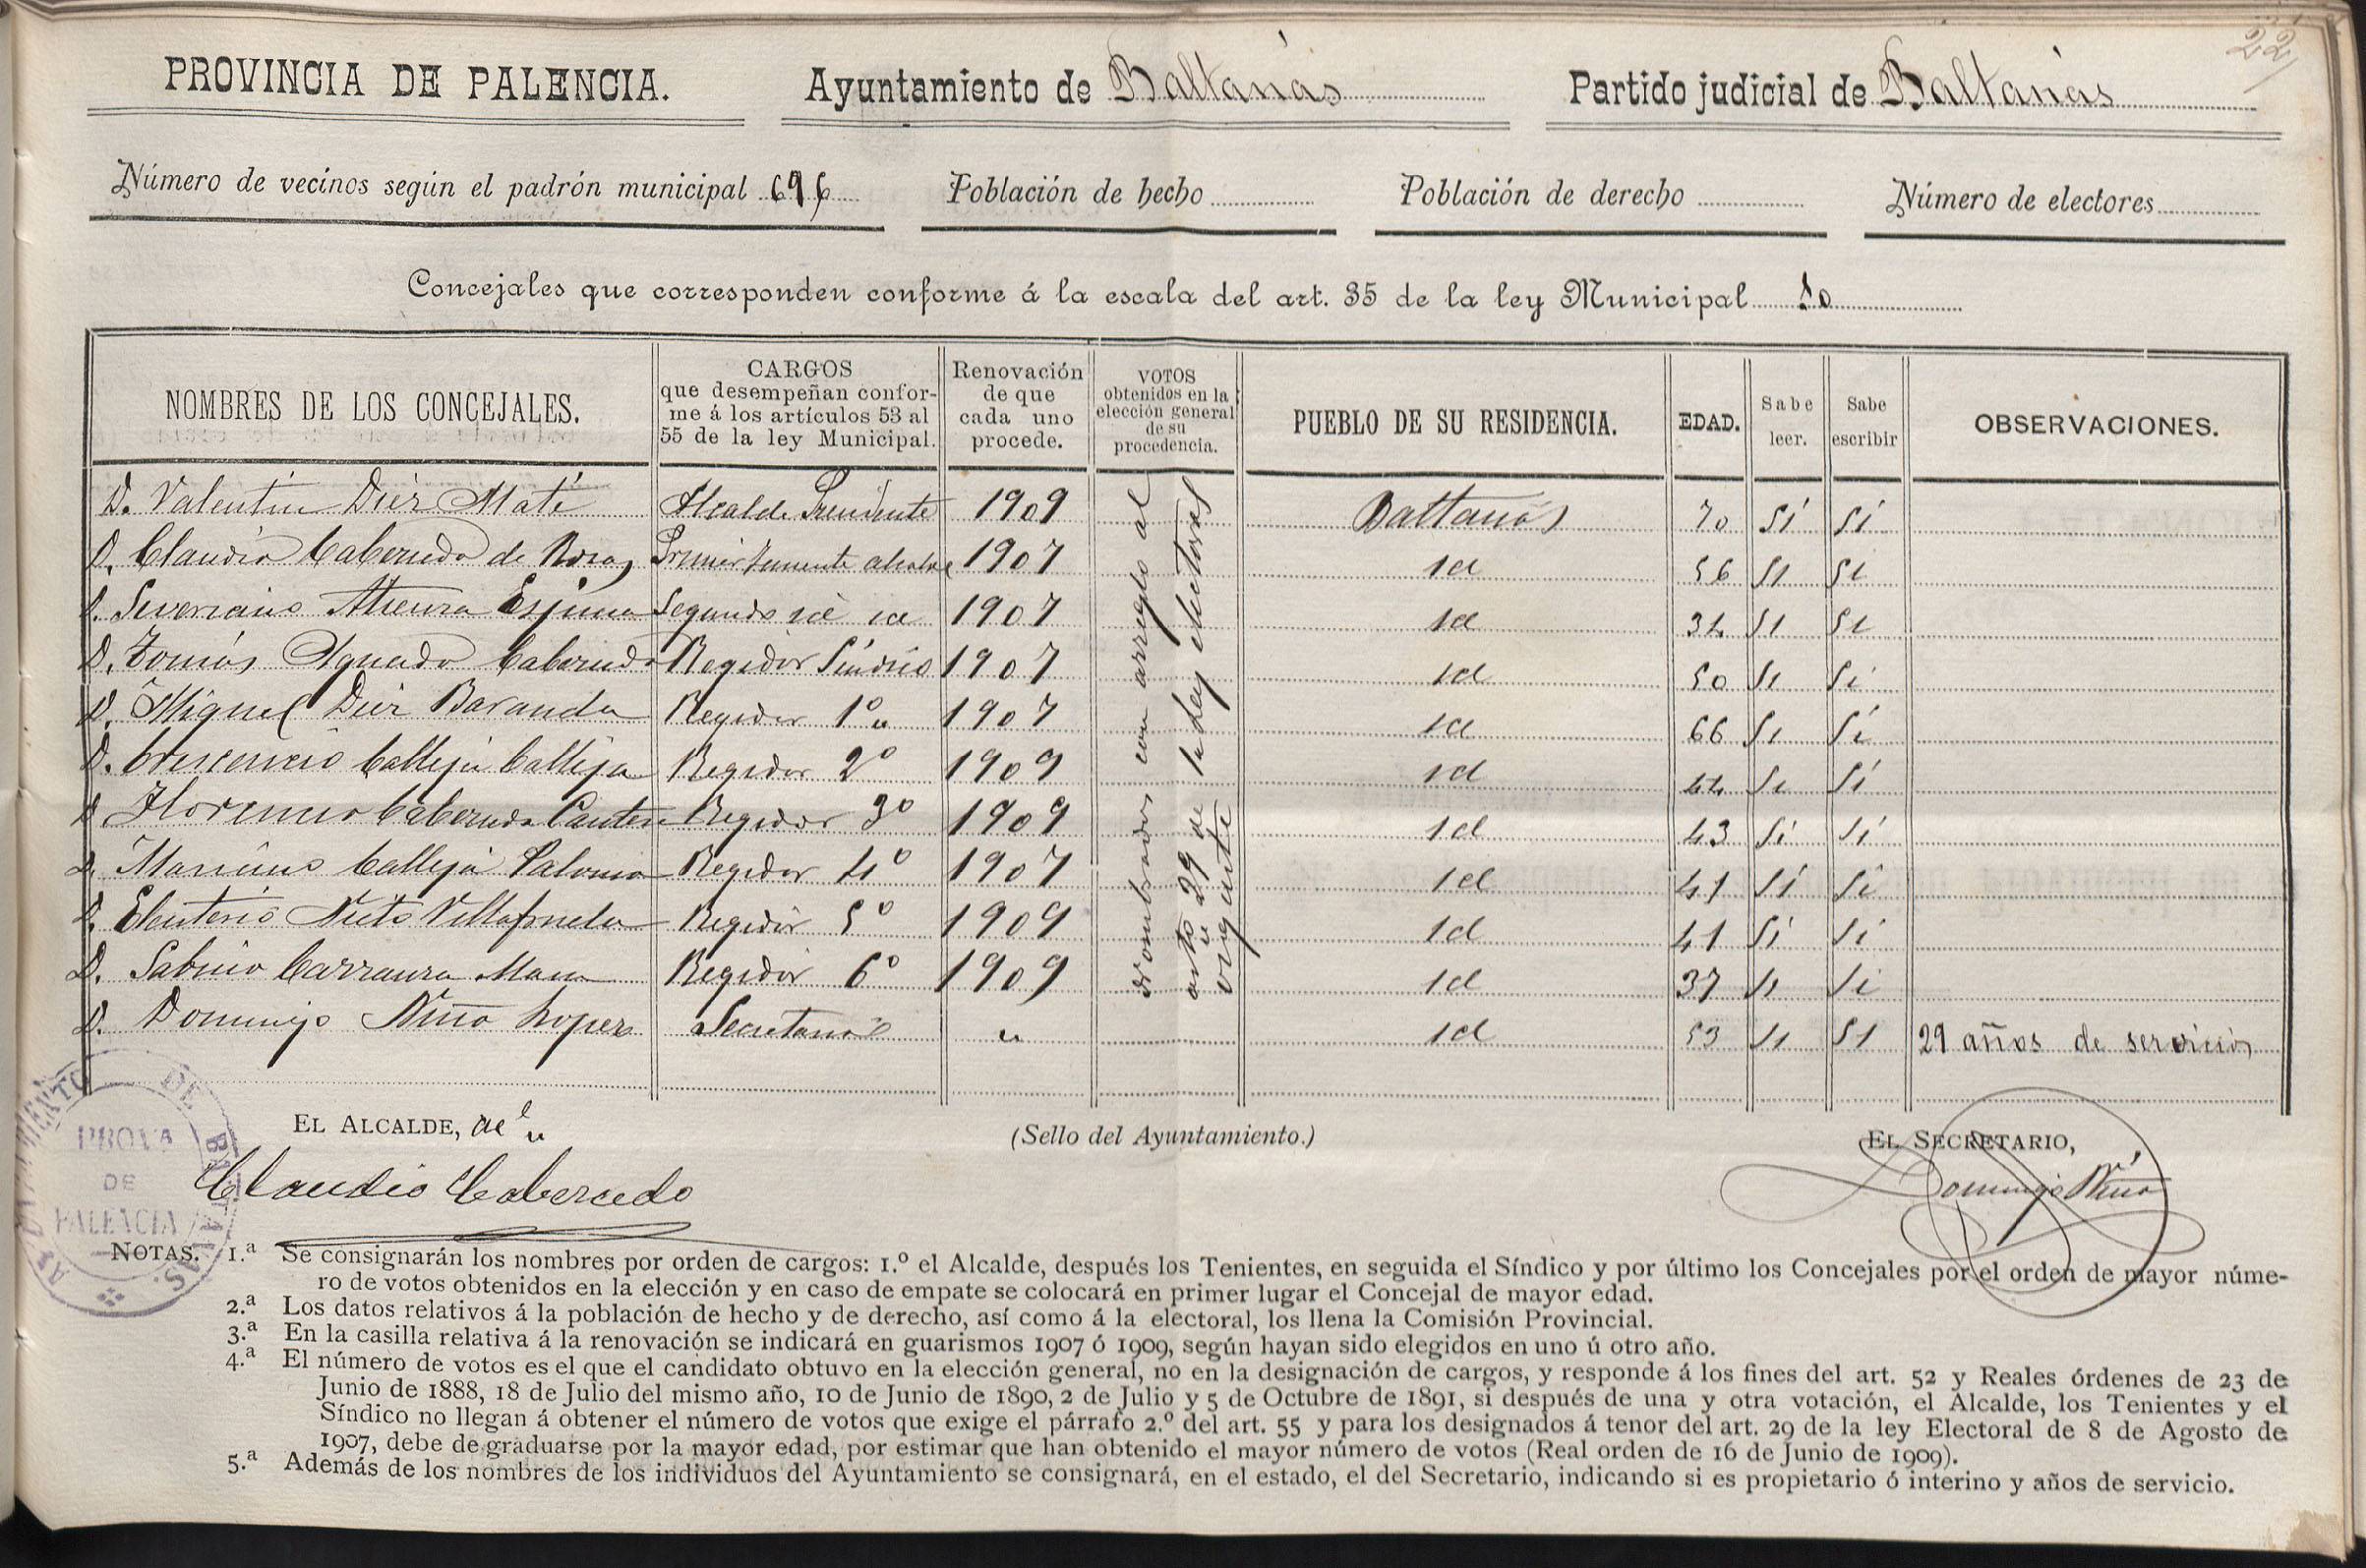 22
PROVINCIA DE PALENCIA. Ayuntamiento de Baltanás Partido judicial de Baltanás
Número de vecinos según el padrón municipal 696 Población de hecho Población de derecho Número de electores
Concejales que corresponden conforme á la escala del art. 35 de la ley Municipal 10
NOMBRES DE LOS CONCEJALES. CARGOS que desempeñan confor- Renovación VOTOS PUEBLO DE SU RESIDENCIA. EDAD. Sabe Sabe OBSERVACIONES.
me á los artículos 53 al de que obtenidos en la leer. escribir
55 de la ley Municipal. cada uno elección general
procede. de su
procedencia.
D. Valentín Diez Maté Alcalde Presidente 1909 Baltanás 70 Sí Sí
D. Claudio Cabezudo de Rozas Primer teniente alcalde 1907 id 56 Si Si
D. Severiano Atienza Espina Segundo id id 1907 id 34 Si Si
D. Tomás Aguado Cabezudo Regidor Síndico 1907 id 50 Si Si
D. Miguel Diez Baranda Regidor 1º 1907 id 66 Si Sí
D. Crescencio Calleja Calleja Regidor 2º 1909 id 44 Si Sí
D. Florencio Cabezudo Regidor 3º 1909 id 43 Si Sí
D. Mariano Calleja Palomo Regidor 4º 1907 id 41 Sí Si
D. Eleuterio Nieto Villafruela Regidor 5º 1909 id 41 Sí Si
D. Sabino Carranza Regidor 6º 1909 id 37 Si Si
D. Domingo Niño Lopez Secretario " id 53 Si Si 29 años de servicios
Nombrados con arreglo al
artº 29 de la ley electoral
vigente
EL ALCALDE, (Sello del Ayuntamiento.) EL SECRETARIO,
Claudio Cabezudo Domingo Niño
AYUNTAMIENTO DE BALTANAS.
PROVA
DE
PALENCIA
NOTAS. 1.ª Se consignarán los nombres por orden de cargos: 1.º el Alcalde, después los Tenientes, en seguida el Síndico y por último los Concejales por el orden de mayor núme-
ro de votos obtenidos en la elección y en caso de empate se colocará en primer lugar el Concejal de mayor edad.
2.ª Los datos relativos á la población de hecho y de derecho, así como á la electoral, los llena la Comisión Provincial.
3.ª En la casilla relativa á la renovación se indicará en guarismos 1907 ó 1909, según hayan sido elegidos en uno ú otro año.
4.ª El número de votos es el que el candidato obtuvo en la elección general, no en la designación de cargos, y responde á los fines del art. 52 y Reales órdenes de 23 de
Junio de 1888, 18 de Julio del mismo año, 10 de Junio de 1890, 2 de Julio y 5 de Octubre de 1891, si después de una y otra votación, el Alcalde, los Tenientes y el
Síndico no llegan á obtener el número de votos que exige el párrafo 2.º del art. 55 y para los designados á tenor del art. 29 de la ley Electoral de 8 de Agosto de
1907, debe de graduarse por la mayor edad, por estimar que han obtenido el mayor número de votos (Real orden de 16 de Junio de 1909).
5.ª Además de los nombres de los individuos del Ayuntamiento se consignará, en el estado, el del Secretario, indicando si es propietario ó interino y años de servicio.